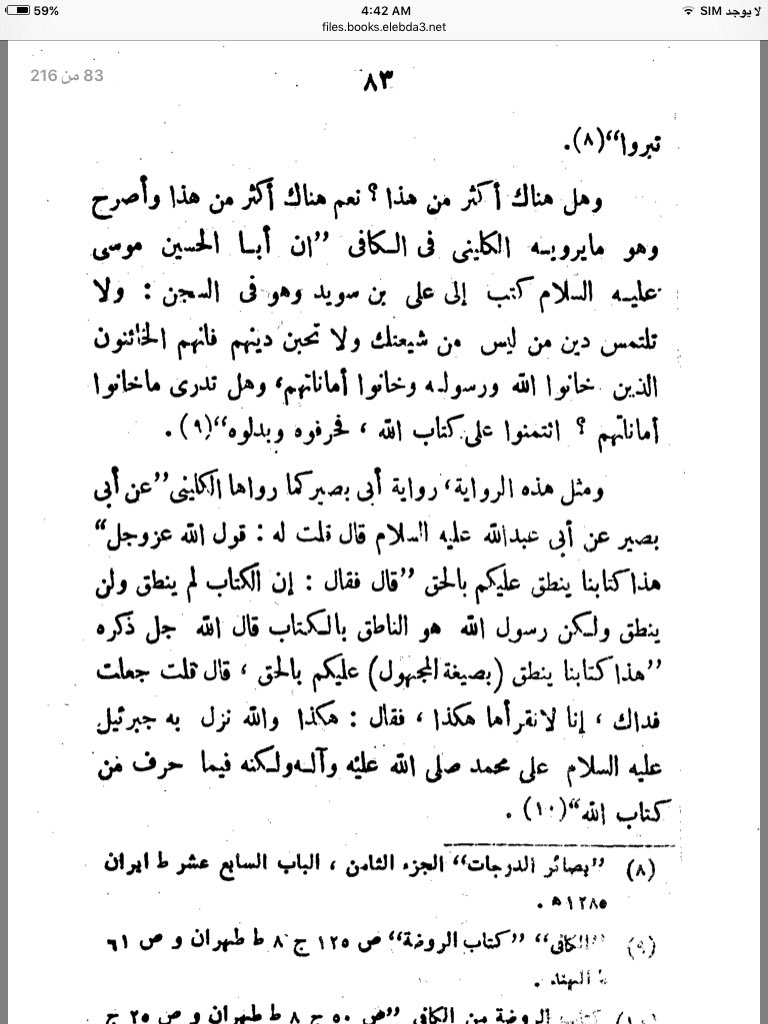 59%
4:42 AM
لا يوجد SIM
files.books.elebda3.net
83 من 216
٨٣
تبروا“(٨).
وهل هناك أكثر من هذا ؟ نعم هناك أكثر من هذا وأصرح
وهو مايرويه الكليني فى الكافى ”ان أبا الحسين موسى
عليه السلام كتب إلى على بن سويد وهو فى السجن : ولا
تلتمس دين من ليس من شيعتك ولا تحبن دينهم فانهم الخائنون
الذين خانوا الله ورسوله وخانوا أماناتهم، وهل تدرى ماخانوا
أماناتهم ؟ ائتمنوا على كتاب الله ، فحرفوه وبدلوه“(٩) .
ومثل هذه الرواية، رواية أبى بصير كما رواها الكلينى ”عن أبى
بصير عن أبى عبدالله عليه السلام قال قلت له : قول الله عزوجل“
هذا كتابنا ينطق عليكم بالحق ”قال فقال : إن الكتاب لم ينطق ولن
ينطق ولكن رسول الله هو الناطق بالكتاب قال الله جل ذكره
”هذا كتابنا ينطق (بصيغة المجهول) عليكم بالحق ، قال قلت جعلت
فداك ، إنا لانقرأها هكذا ، فقال : هكذا والله نزل به جبرئيل
عليه السلام على محمد صلى الله عليه وآله ولكنه فيما حرف من
كتاب الله“(١٠) .
(٨) ”بصائر الدرجات“ الجزء الثامن ، الباب السابع عشر ط ايران
١٢٨٥ه .
(٩) ”الكافى“ ”كتاب الروضة“ ص ١٢٥ ج ٨ ط طهران و ص ٦١
ط الهند .
الروضة من الكافى ”ص ٥٠ ج ٨ ط طهران و ص ٢٥ ج